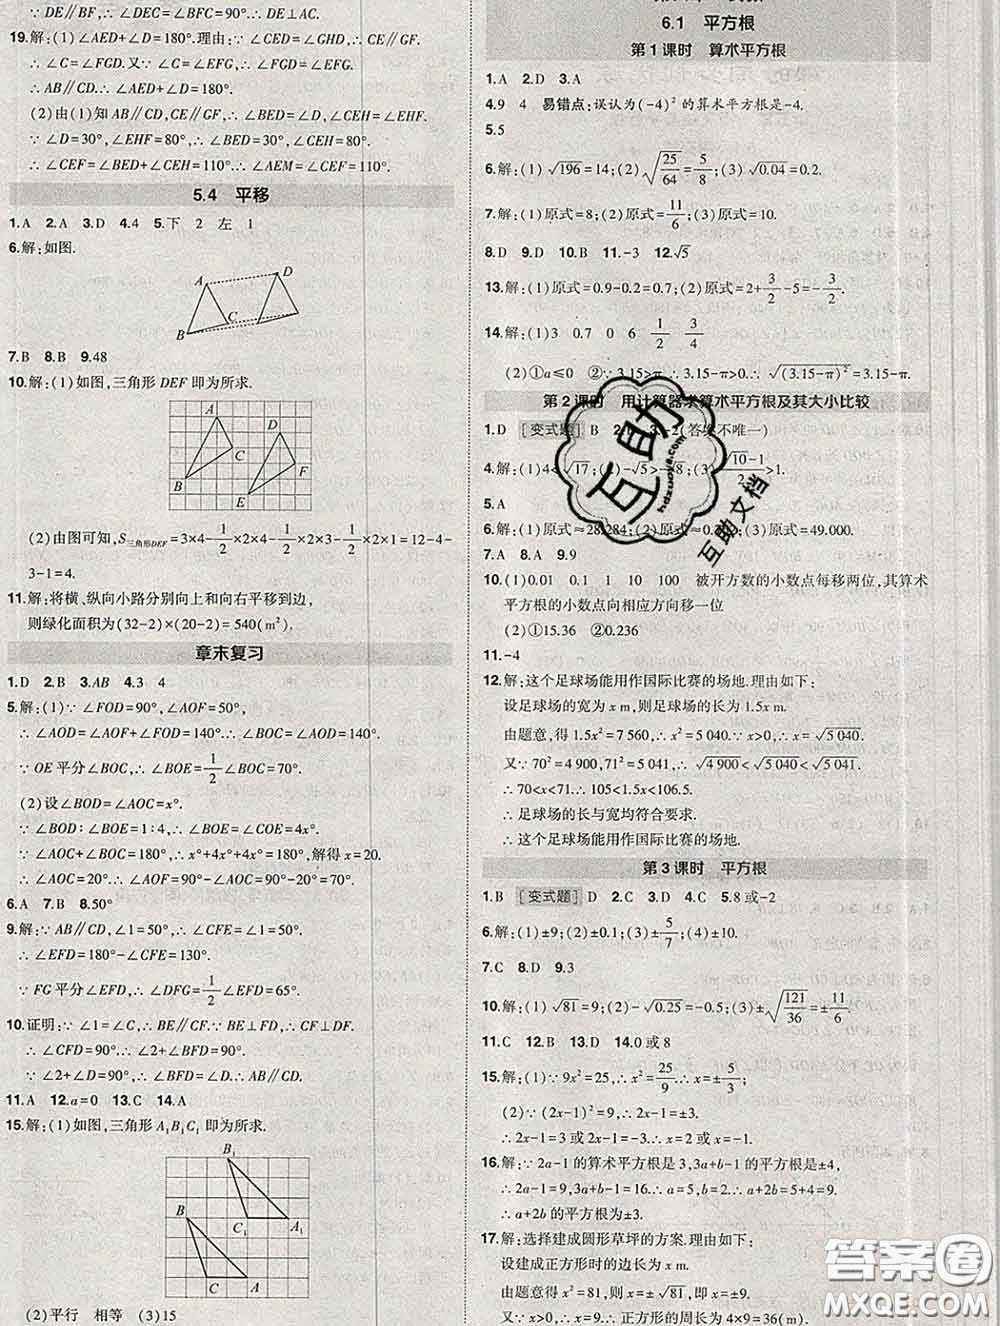 ∵ DE∥BF, ∴ ∠DEC=∠BFC=90°. ∴ DE⊥AC.
19.解:(1)∠AED+∠D=180°.理由:∵ ∠CED=∠GHD, ∴ CE∥GF.
∴ ∠C=∠FGD. 又∵ ∠C=∠EFG, ∴ ∠FGD=∠EFG.
∴ AB∥CD. ∴ ∠AED+∠D=180°.
(2)由(1)知 AB∥CD, CE∥GF, ∴ ∠BED=∠D, ∠CEH=∠EHF.
∵ ∠D=30°, ∠EHF=80°, ∴ ∠BED=30°, ∠CEH=80°.
∴ ∠CEF=∠BED+∠CEH=110°. ∴ ∠AEM=∠CEF=110°.
5.4 平移
1.A 2.A 3.D 4.4 5.下 2 左 1
6.解:如图.
A D B C
7.B 8.B 9.48
10.解:(1)如图,三角形 DEF 即为所求.
A D C F B E
(2)由图可知, S三角形DEF=3×4-1/2×2×4-1/2×2×3-1/2×2×1=12-4-
3-1=4.
11.解:将横、纵向小路分别向上和向右平移到边,
则绿化面积为(32-2)×(20-2)=540(m²).
章末复习
1.D 2.B 3.AB 4.3 4
5.解:(1)∵ ∠FOD=90°, ∠AOF=50°,
∴ ∠AOD=∠AOF+∠FOD=140°. ∴ ∠BOC=∠AOD=140°.
∵ OE 平分∠BOC, ∴ ∠BOE=1/2∠BOC=70°.
(2)设∠BOD=∠AOC=x°.
∵ ∠BOD:∠BOE=1:4, ∴ ∠BOE=∠COE=4x°.
∵ ∠AOC+∠BOC=180°, ∴ x°+4x°+4x°=180°,解得 x=20.
∴ ∠AOC=20°. ∴ ∠AOF=90°-∠AOC=70°.
6.A 7.B 8.50°
9.解:∵ AB∥CD, ∠1=50°, ∴ ∠CFE=∠1=50°.
∴ ∠EFD=180°-∠CFE=130°.
∵ FG 平分∠EFD, ∴ ∠DFG=1/2∠EFD=65°.
10.证明:∵ ∠1=∠C, ∴ BE∥CF. ∵ BE⊥FD, ∴ CF⊥DF.
∴ ∠CFD=90°. ∴ ∠2+∠BFD=90°.
∵ ∠2+∠D=90°, ∴ ∠BFD=∠D. ∴ AB∥CD.
11.A 12.a=0 13.C 14.A
15.解:(1)如图,三角形 A₁B₁C₁ 即为所求.
B₁ B C₁ A₁ C A
(2)平行 相等 (3)15
6.1 平方根
第1课时 算术平方根
1.A 2.D 3.A
4.9 4 易错点:误认为(-4)²的算术平方根是-4.
5.5
6.解:(1)√196=14;(2)√(25/64)=5/8;(3)√0.04=0.2.
7.解:(1)原式=8;(2)原式=11/6;(3)原式=10.
8.D 9.D 10.B 11.-3 12.√5
13.解:(1)原式=0.9-0.2=0.7;(2)原式=2+3/2-5=-3/2.
14.解:(1)3 0.7 0 6 1/2 3/4
(2)①a≤0 ②∵ 3.15>π, ∴ 3.15-π>0. ∴ √(3.15-π)²=3.15-π.
第2课时 用计算器求算术平方根及其大小比较
1.D [变式题] B 2. 3. 2(答案不唯一)
4.解:(1)4<√17;(2)-√5>-√8;(3)(√10-1)/ >1.
5.A
6.解:(1)原式≈28.284;(2)原式≈0. (3)原式≈49.000.
7.A 8.A 9.9
10.(1)0.01 0.1 1 10 100 被开方数的小数点每移两位,其算术
平方根的小数点向相应方向移一位
(2)①15.36 ②0.236
11.-4
12.解:这个足球场能用作国际比赛的场地.理由如下:
设足球场的宽为 x m,则足球场的长为 1.5x m.
由题意,得 1.5x²=7 560, ∴ x²=5 040. ∵ x>0, ∴ x=√5 040.
又∵ 70²=4 900, 71²=5 041, ∴ √4 900<√5 040<√5 041.
∴ 70<x<71. ∴ 105<1.5x<106.5.
∴ 足球场的长与宽均符合要求.
∴ 这个足球场能用作国际比赛的场地.
第3课时 平方根
1.B [变式题] D 2.C 3.D 4.C 5.8 或-2
6.解:(1)±9;(2)±0.1;(3)±5/7;(4)±10.
7.C 8.D 9.3
10.解:(1)√81=9;(2)-√0.25=-0.5;(3)±√(121/36)=±11/6.
11.C 12.B 13.D 14.0 或 8
15.解:(1)∵ 9x²=25, ∴ x²=25/9. ∴ x=±5/3.
(2)∵ (2x-1)²=9, ∴ 2x-1=±3.
∴ 2x-1=3 或 2x-1=-3. ∴ x=2 或 x=-1.
16.解:∵ 2a-1 的算术平方根是 3, 3a+b-1 的平方根是±4,
∴ 2a-1=9, 3a+b-1=16. ∴ a=5, b=2. ∴ a+2b=9.
∴ a+2b 的平方根为±3.
17.解:选择建成圆形草坪的方案.理由如下:
设建成正方形时的边长为 x m,
由题意得 x²=81, ∴ x=±9.
又∵ x>0, ∴ x=9. ∴ 正方形的周长为 4×9=36(m).
互助
hdzuoye.com
互助文档
答案圈
MXQE.COM